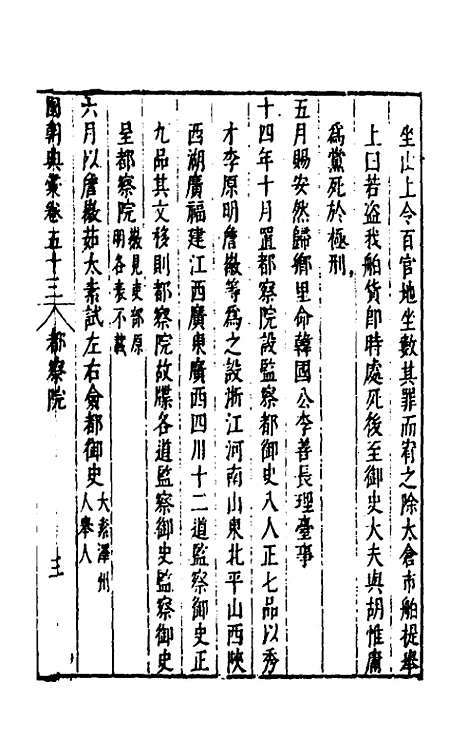 坐山上令百官地坐數其罪而宥之除太倉市舶提舉
上曰若盜我舶貨即時處死後至御史大夫與胡惟庸
為黨死於極刑
五月賜安然歸鄉里命韓國公李善長理臺事
十四年十月置都察院設監察都御史八人正七品以秀
才李原明詹徽等為之設浙江河南山東北平山西陝
西湖廣福建江西廣東廣西四川十二道監察御史正
九品其文移則都察院故牒各道監察御史監察御史
呈都察院徽見吏部原明各表不載
六月以詹徽茹太素試左右僉都御史太素澤州人舉人
國朝典彙卷五十三 都察院 三